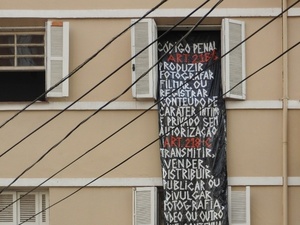 CÓDIGO PENAL
ART. 216-B
PRODUZIR
FOTOGRAFAR
FILMAR OU
REGISTRAR
CONTEÚDO DE
CARÁTER ÍNTIMO
E PRIVADO SEM
AUTORIZAÇÃO
ART. 218-C
TRANSMITIR,
VENDER,
DISTRIBUIR
PUBLICAR OU
DIVULGAR
FOTOGRAFIA,
VÍDEO OU OUTRO